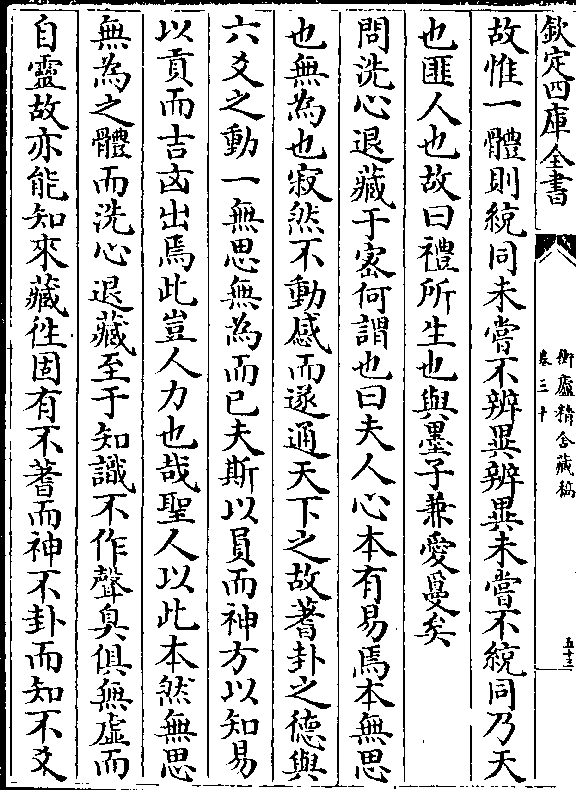 欽定四庫全書
衡廬精舍藏稿
卷三十
五十三
故惟一體則統同未嘗不辨異辨異未嘗不統同乃天
也匪人也故曰禮所生也與墨子兼愛敻矣
問洗心退藏于宻何謂也曰夫人心本有易焉本無思
也無為也寂然不動感而遂通天下之故蓍卦之德與
六爻之動一無思無為而已夫斯以員而神方以知易
以貢而吉凶出焉此豈人力也哉聖人以此本然無思
無為之體而洗心退藏至于知識不作聲臭俱無虛而
自靈故亦能知來藏徃固有不蓍而神不卦而知不爻